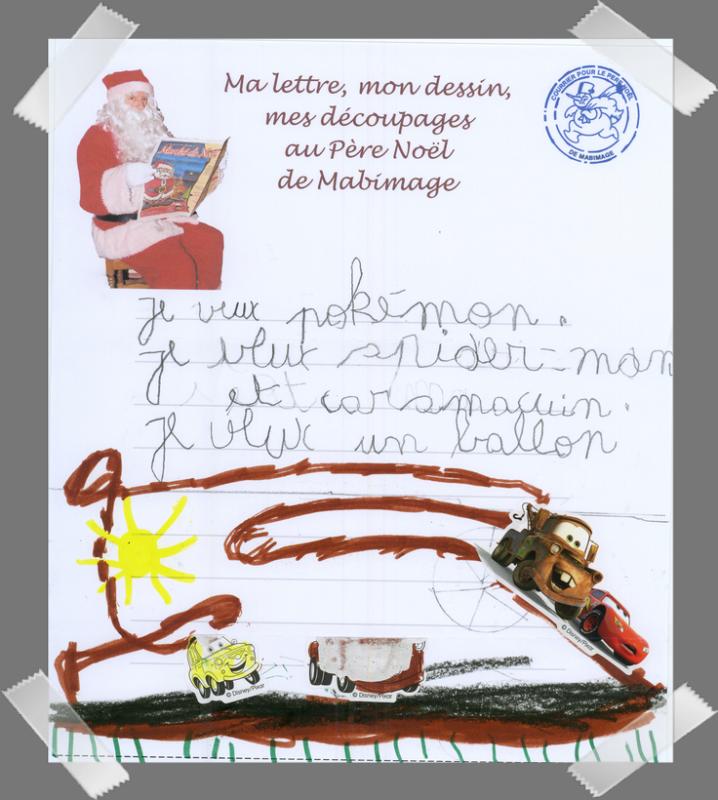 Ma lettre, mon dessin,
mes découpages
au Père Noël
de Mabimage
COURRIER POUR LE PERE NOEL
DE MABIMAGE
Marché de Noël
je veux pokémon.
je veux spider-man
et cars maquin.
je veux un ballon
© Disney/Pixar
© Disney/Pixar
© Disney/Pixar